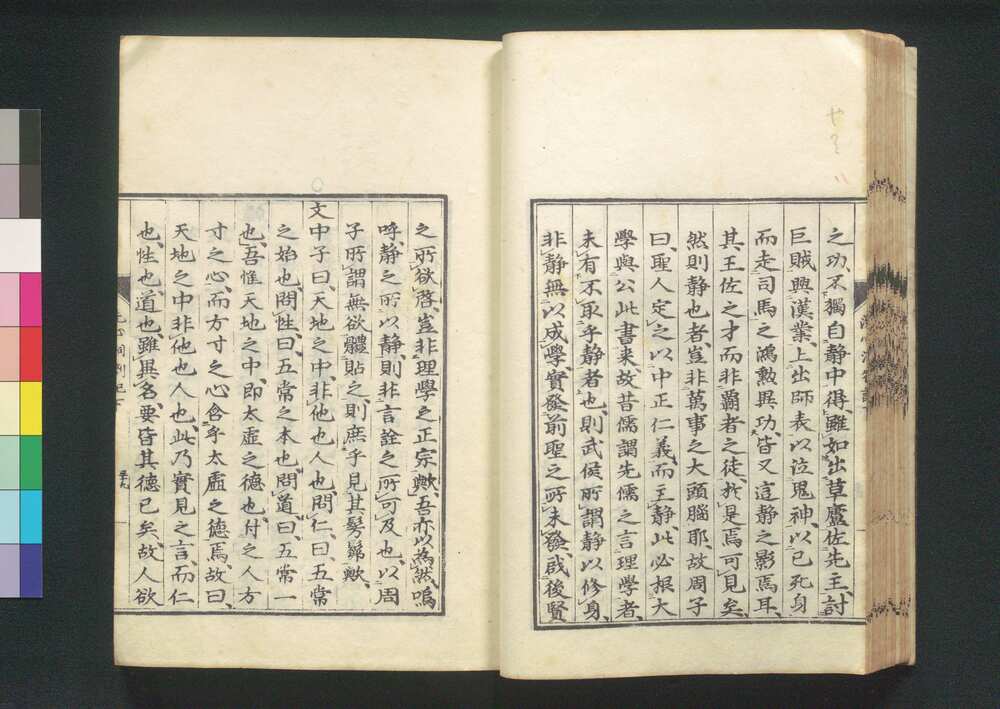 之功、不獨自静中得、雖如出草廬佐先主、討
巨賊興漢業、上出師表以泣鬼神、以已死身
而走司馬之鴻勲異功、皆又這静之影焉耳、
其王佐之才而非覇者之徒、於是焉可見矣、
然則静也者、豈非萬事之大頭腦耶、故周子
曰、聖人定之以中正仁義、而主静、此必根大
學與公此書来、故昔儒謂先儒之言理學者、
未有不取乎静者也、則武侯所謂静以修身、
非静無以成學、實發前聖之所未發、啟後賢
之所欲啓、豈非理學之正宗歟、吾亦以為然、嗚
呼、静之所以静、則非言詮之所可及也、以周
子所謂無欲體貼之、則庶乎見其髣髴歟、
文中子曰、天地之中、非他也人也、問仁、曰、五常
之始也、問性、曰、五常之本也、問道、曰、五常一
也、吾惟天地之中、即太虚之德也、付之人方
寸之心、而方寸之心含乎太虚之德焉、故曰、
天地之中、非他也人也、此乃實見之言、而仁
也、性也、道也、雖異名、要皆其德已矣、故人欲